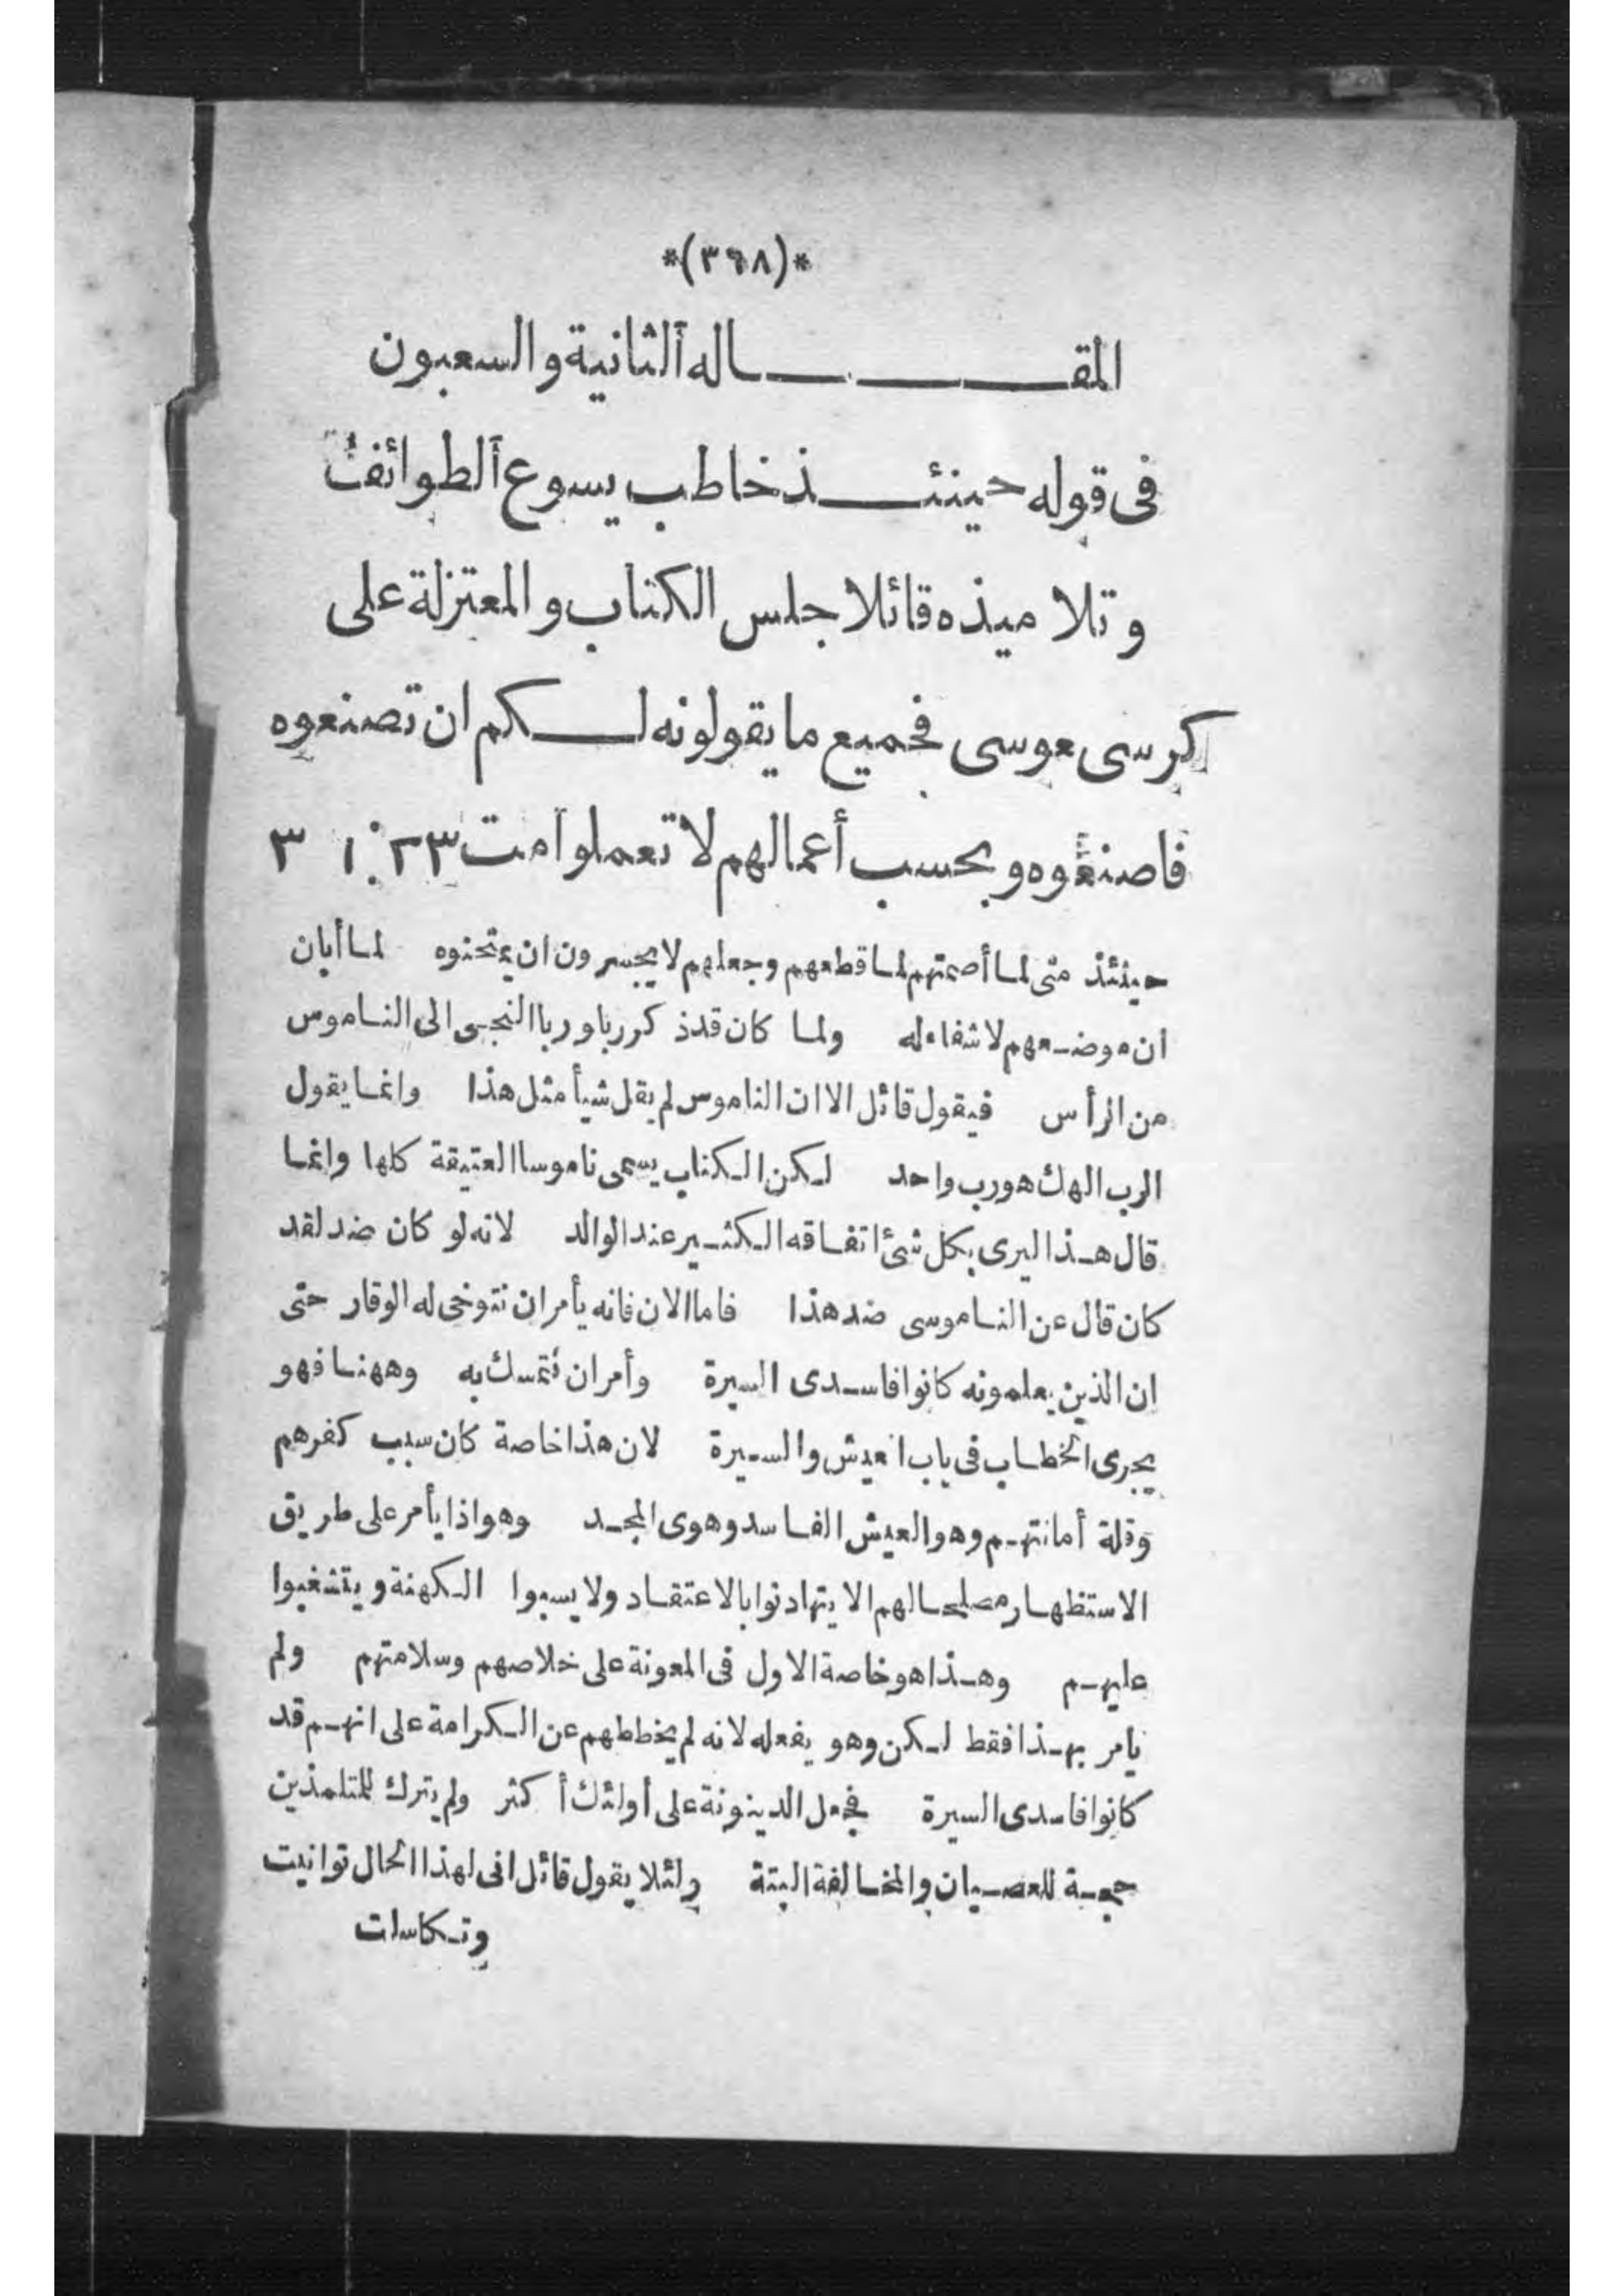 *(٣٦٨)*
المقـــــــاله الثانية والسعبون
فى قوله حينئـــذ خاطب يسوع الطوائف
وتلاميذه قائلا جلس الكتاب والمعتزلة على
كرسى موسى فجميع ما يقولونه لـــكم ان تصنعوه
فاصنعوه و بحسب أعمالهم لا تعملوا مت ٢٣ : ١ ٣
حينئذ متى لما أصمتهم لما قطعهم وجعلهم لا يجسرون ان يمتحنوه لما أبان
ان موضـعهم لا شفاء له ولما كان قد ذكر ربا وربا التجى الى النـاموس
من الرأس فيقول قائل الا ان الناموس لم يقل شيأ مثل هذا وانمـا يقول
الرب الهك هو رب واحد لـكن الـكتاب يسمى ناموسا العتيقة كلها وانمـا
قال هـذا ليرى بكل شئ اتفـاقه الـكثـير عند الوالد لانه لو كان ضد لقد
كان قال عن النـاموسى ضد هذا فاما الان فانه يأمر ان نتوخى له الوقار حتى
ان الذين يعلمونه كانوا فاسـدى السيرة وأمر ان نتمسك به وههنـا فهو
يجرى الخطـاب فى باب العيش والسـيرة لان هذا خاصة كان سبب كفرهم
وقلة أمانتهـم وهو العيش الفـاسد وهوى المجـد وهو اذا يأمر على طريق
الاستظهـار مصلحـالهم الا يتهادنوا بالاعتقـاد ولا يسبوا الـكهنة ويتشغبوا
عليهـم وهـذا هو خاصة الاول فى المعونة على خلاصهم وسلامتهم ولم
يامر بهـذا فقط لـكن وهو يفعله لانه لم يخططهم عن الـكرامة على انهـم قد
كانوا فاسدى السيرة فجعل الدينونة على أولئك أكثر ولم يترك للمتلمذين
حجـة للعصـيان والمخـالفة البتة ولئلا يقول قائل انى لهذا الحال توانيت
وتـكاسلت